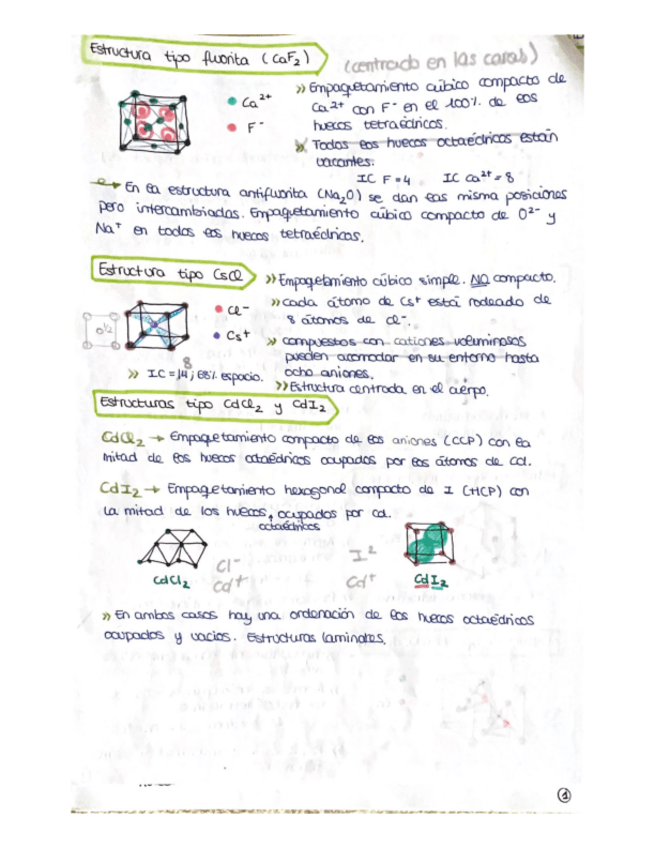 Estructura tipo fluorita (CaF₂)
(centrado en las caras)
Ca²⁺
F⁻
» Empaquetamiento cúbico compacto de
Ca²⁺ con F⁻ en el 100% de los
huecos tetraédricos.
» Todos los huecos octaédricos están
vacantes.
IC F = 4 IC Ca²⁺ = 8
En la estructura antifluorita (Na₂O) se dan las misma posiciones
pero intercambiadas. Empaquetamiento cúbico compacto de O²⁻ y
Na⁺ en todos los huecos tetraédricos.
Estructura tipo CsCl
» Empaquetamiento cúbico simple. NO compacto.
» cada átomo de Cs⁺ está rodeado de
8 átomos de Cl⁻.
Cl⁻
Cs⁺
0 1/2
» compuestos con cationes voluminosos
pueden acomodar en su entorno hasta
ocho aniones.
8
» IC = 14; 68% espacio.
»Estructura centrada en el cuerpo.
Estructuras tipo CdCl₂ y CdI₂
CdCl₂ → Empaquetamiento compacto de los aniones (CCP) con la
mitad de los huecos octaédricos ocupados por los átomos de Cd.
CdI₂ → Empaquetamiento hexagonal compacto de I (HCP) con
la mitad de los huecos, ocupados por cd.
octaédricos
CdCl₂
Cl⁻
Cd⁺
I²
Cd⁺
CdI₂
» En ambos casos hay una ordenación de los huecos octaédricos
ocupados y vacios. Estructuras laminales.
1